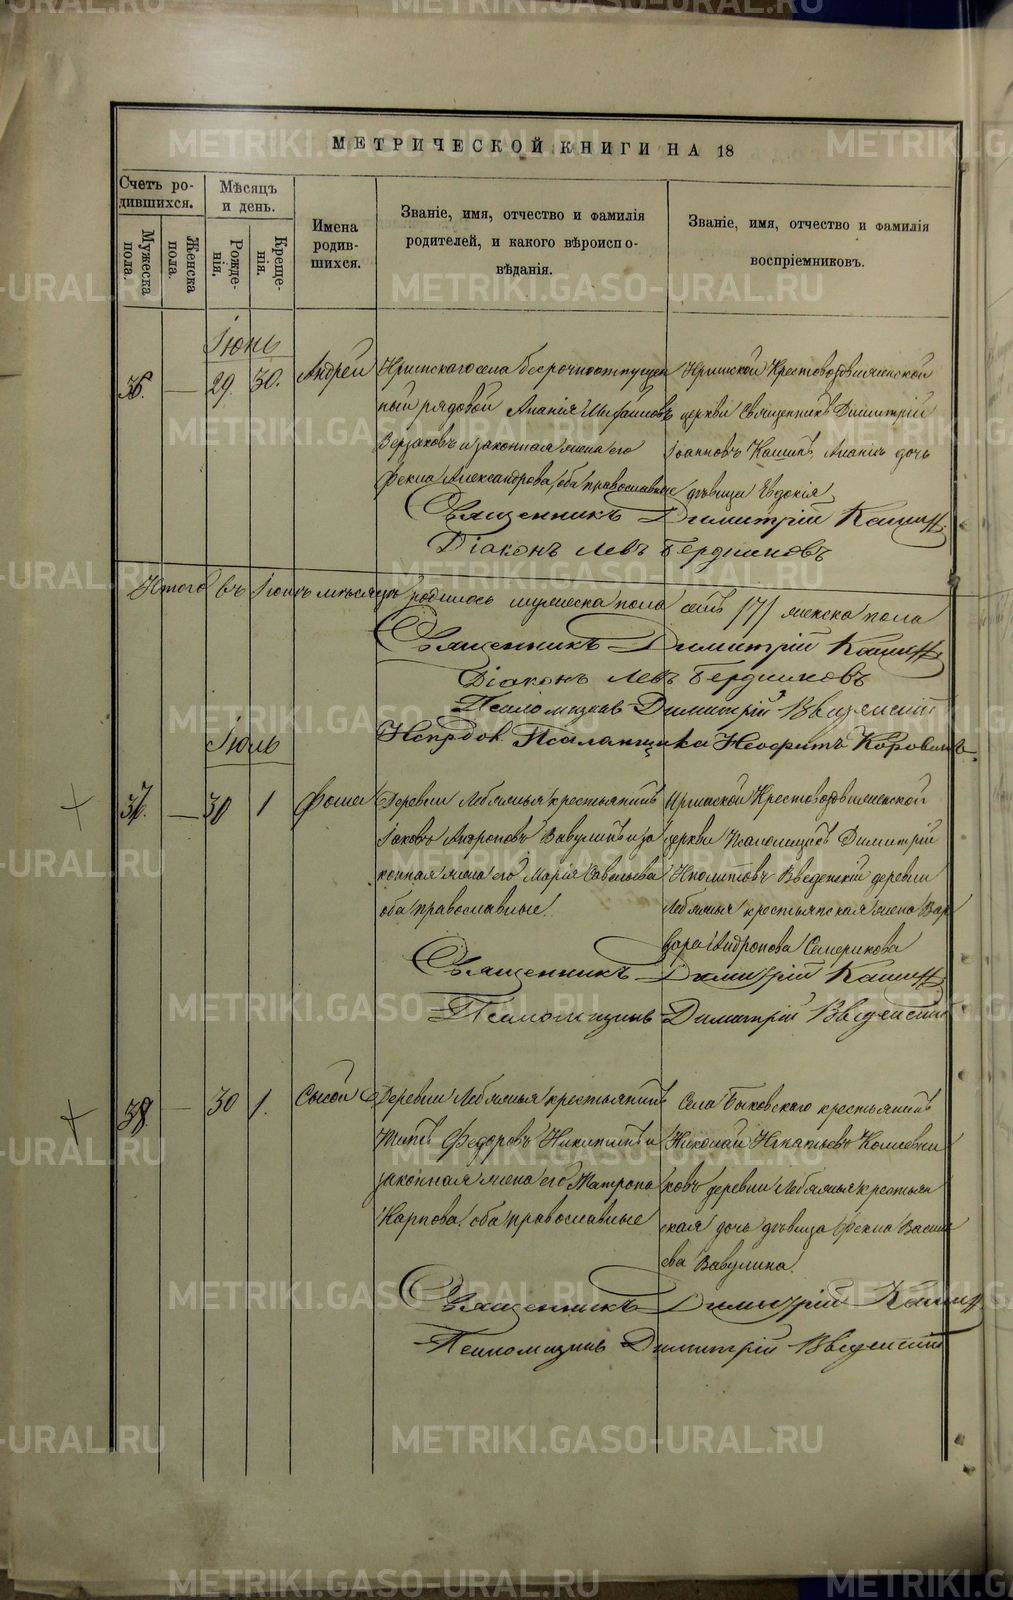 МЕТРИЧЕСКОЙ КНИГИ НА 18
Счетъ родившихся.
Мужеска пола.
Женска пола.
Мѣсяцъ и день.
Рожденія.
Крещенія.
Имена родившихся.
Званіе, имя, отчество и фамилія родителей, и какого вѣроисповѣданія.
Званіе, имя, отчество и фамилія воспріемниковъ.
Іюнь
36. — 29. 30. Андрей
села безсрочноотпущен
ный рядовой Ананія
и законная жена его
Фекла Александрова, оба православные
Крестовоздвиженской
церкви Священникъ Димитрій
Іоанновъ Кашинъ, дочь
дѣвица Евдокія
Священникъ Димитрій Кашинъ
Діаконъ Левъ Бердниковъ
Итого въ Іюнѣ мѣсяцѣ родилось мужеска пола семь /7/ женска пола
Священникъ Димитрій Кашинъ
Діаконъ Левъ Бердниковъ
Псаломщикъ Димитрій Введенскій
Псаломщика Неофитъ Коровинъ
Іюль
37. — 30 1 Фома
Деревни Лебяжья крестьянинъ
Іаковъ Андроновъ Вавулинъ и за
конная жена его Марія Савельева
оба православные.
Крестовоздвиженской
церкви Псаломщикъ Димитрій
Иполитовъ Введенскій деревни
Лебяжья крестьянская жена Вар
вара Андронова Семерикова
Священникъ Димитрій Кашинъ
Псаломщикъ Димитрій Введенскій
38. — 30 1. Сысой
Деревни Лебяжья крестьянинъ
Титъ Федоровъ Никитинъ и
законная жена его Матрона
Карпова, оба православные
Села Быковскаго крестьянинъ
Николай Игнатьевъ
ковъ деревни Лебяжья крестьян
ская дочь дѣвица Фекла Василь
ева Вавулина.
Священникъ Димитрій Кашинъ
Псаломщикъ Димитрій Введенскій
METRIKI.GASO-URAL.RU